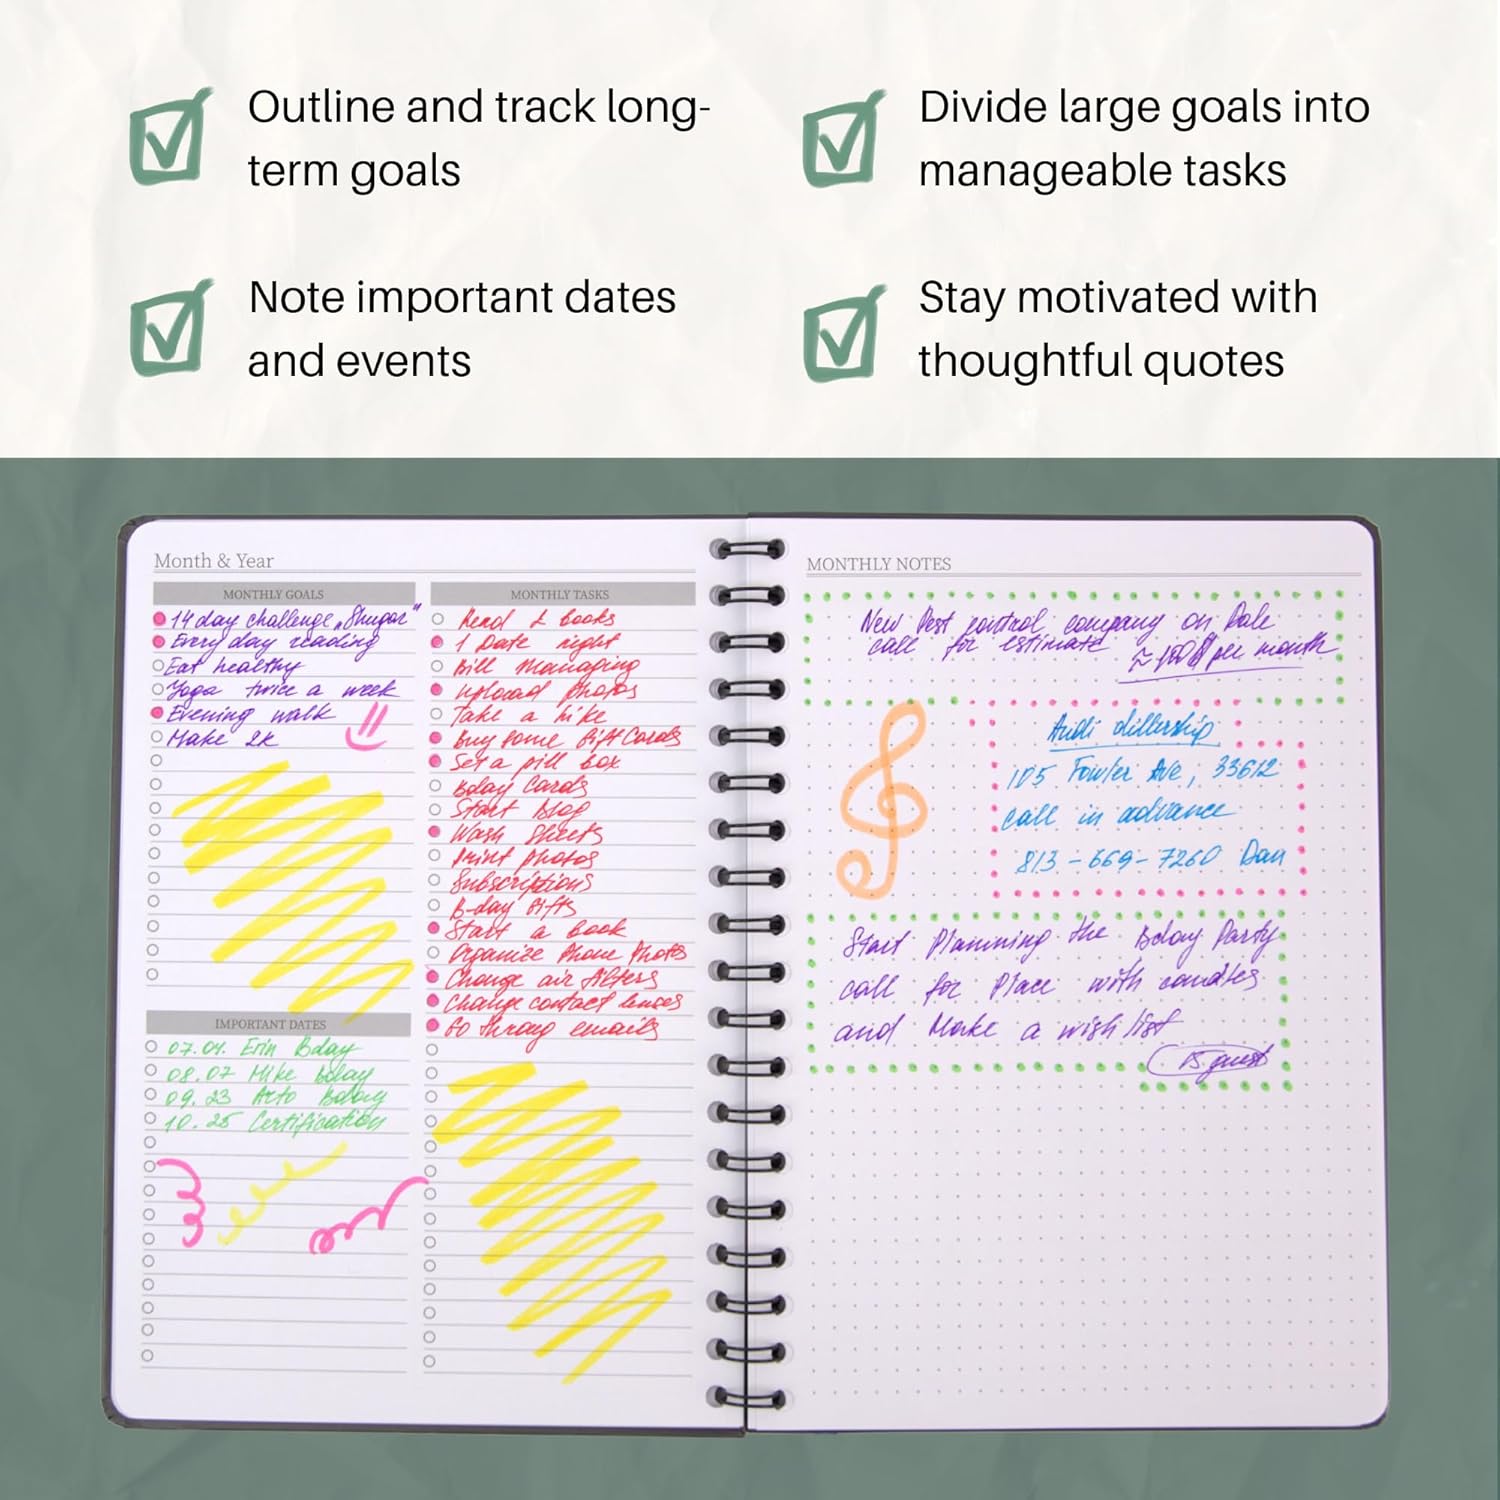 Outline and track long-
term goals
Divide large goals into
manageable tasks
Note important dates
and events
Stay motivated with
thoughtful quotes
Month & Year
MONTHLY GOALS
14 day challenge „Shugar"
Every day reading
Eat healthy
Yoga twice a week
Evening walk
Make 2k
IMPORTANT DATES
07.04. Erin Bday
08.07 Mike Bday
09.23 Arto Bday
10.25 Certification
MONTHLY TASKS
Read 2 books
1 Date night
Bill Managing
Upload photos
Take a hike
Buy some Gift Cards
Set a pill box
Bday Cards
Start Blog
Wash Sheets
Print photos
Subscriptions
B-day Gifts
Start a Book
Organize Phone Photos
Change air filters
Change contact lenses
Go throug emails
MONTHLY NOTES
New Pest control company on Dale
call for estimate
≈ 100$ per month
Audi dillership
105 Fowler Ave, 33612
call in advance
813-669-7260 Dan
Start Planning the Bday Party
call for Place with candles
and Make a wish list